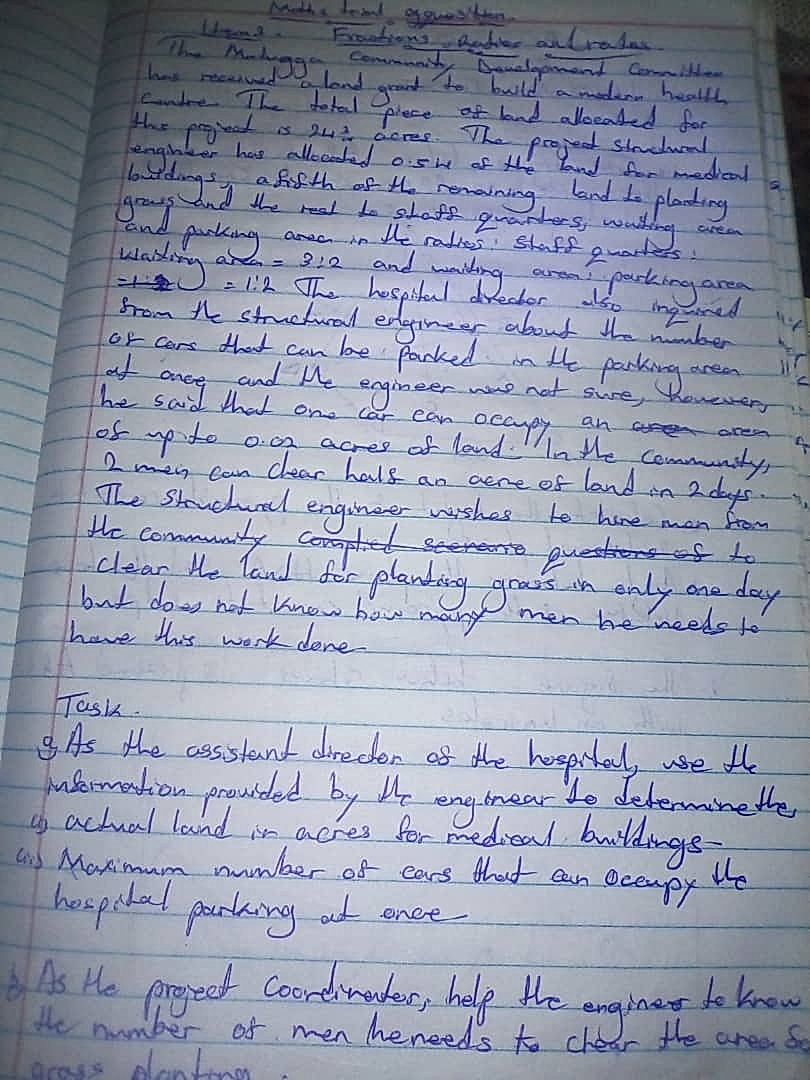 Maths
Item 1. Fractions, Ratios and rates
The Community Development Committee
has received a land grant to build a modern health
Centre. The total piece of land allocated for
this project is 24 acres. The project structural
engineer has allocated of the land for medical
buildings, a fifth of the remaining land to planting
grass and the rest to staff quarters, waiting area
and parking area in the ratios: Staff quarters:
Waiting area = 3:2 and waiting area: parking area
= 1:2 The hospital director also inquired
from the structural engineer about the number
of cars that can be parked in the parking area
at once and the engineer was not sure, however,
he said that one car can occupy an area
of up to 0.02 acres of land. In the community,
2 men can clear half an acre of land in 2 days.
The structural engineer wishes to hire men from
the community to
clear the land for planting grass in only one day
but does not know how many men he needs to
have this work done
Task.
a) As the assistant director of the hospital, use the
information provided by the enginear to determine the;
i) actual land in acres for medical buildings-
ii) Maximum number of cars that can occupy the
hospital parking at once
b As the project Coordinator, help the engineer to know
the number of men he needs to clear the area
grass planting.